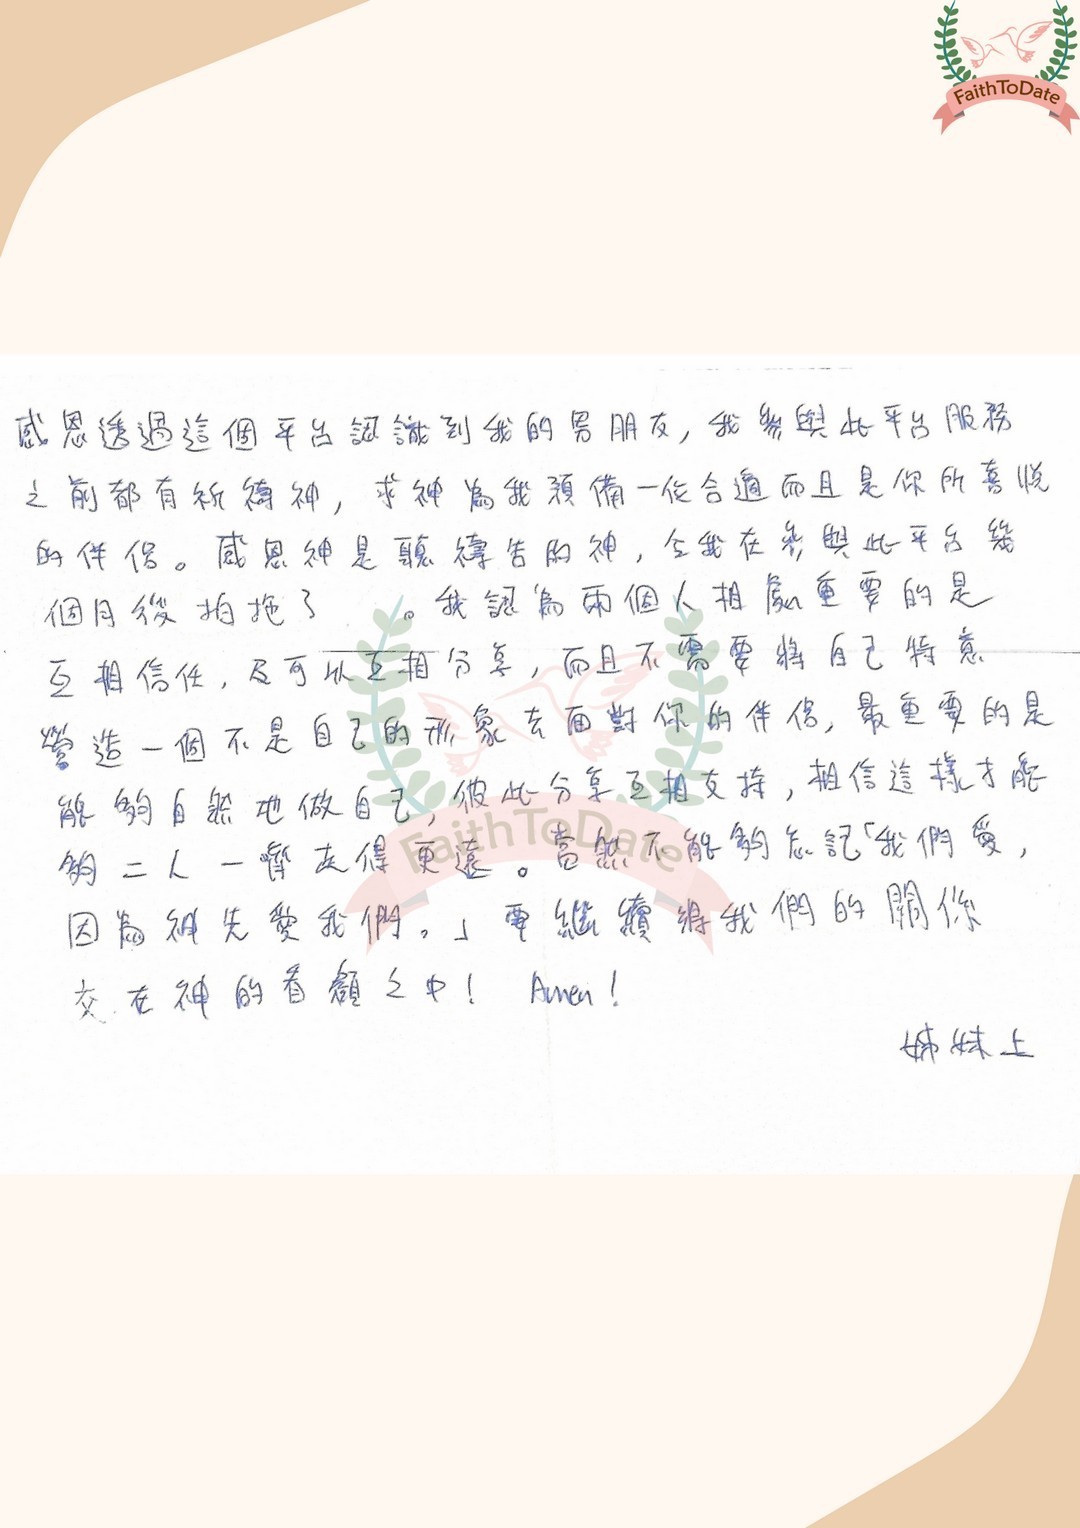 FaithToDate
感恩透過這個平台認識到我的男朋友,我參與此平台服務
之前都有祈禱神,求神為我預備一位合適而且是你所喜悅
的伴侶。感恩神是聽禱告的神,令我在參與此平台幾
個月後拍拖了 。我認為兩個人相處重要的是
互相信任,及可以互相分享,而且不需要將自己特意
營造一個不是自己的形象去面對你的伴侶,最重要的是
能夠自然地做自己,彼此分享互相支持,相信這樣才能
夠二人一齊走得更遠。當然不能夠忘記「我們愛,
因為神先愛我們。」要繼續將我們的關係
交在神的看顧之中! Amen!
姊妹上
FaithToDate